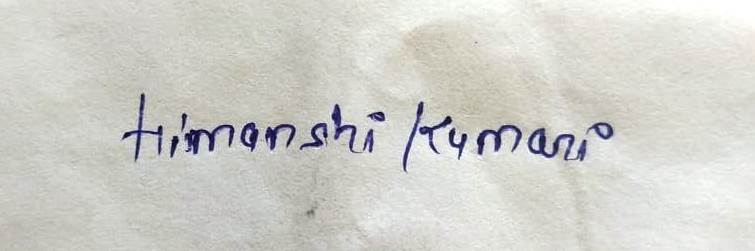 Himanshi Kumari